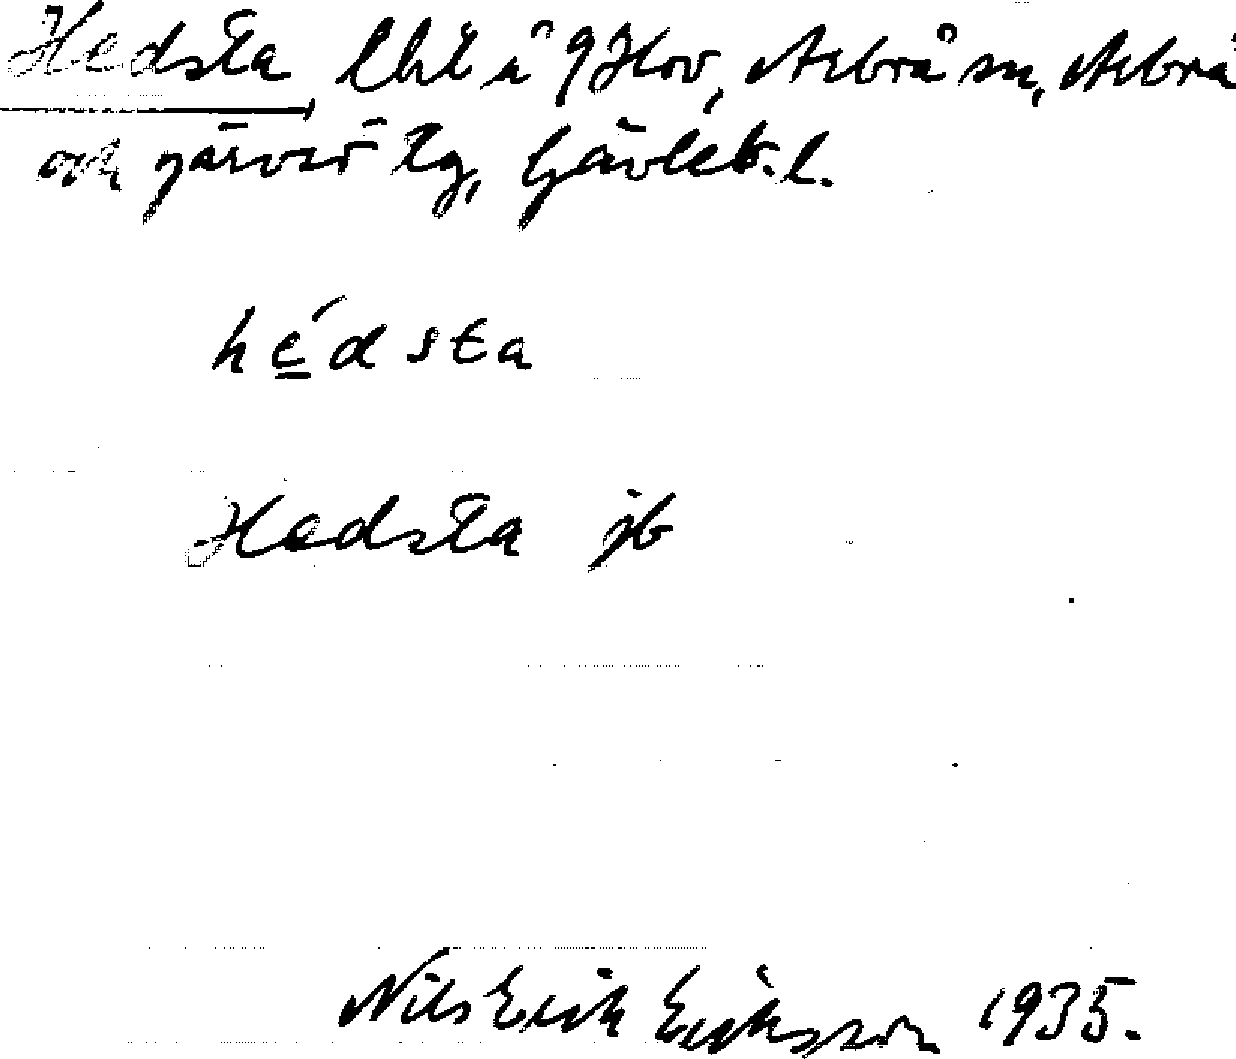 Hedsta lht å 9 Hov, Arbrå sn, Arbrå
och Järvsö tg, Gävleb. l.
hédsta
Hedsta jb
Nils Erik Eriksson 1935.